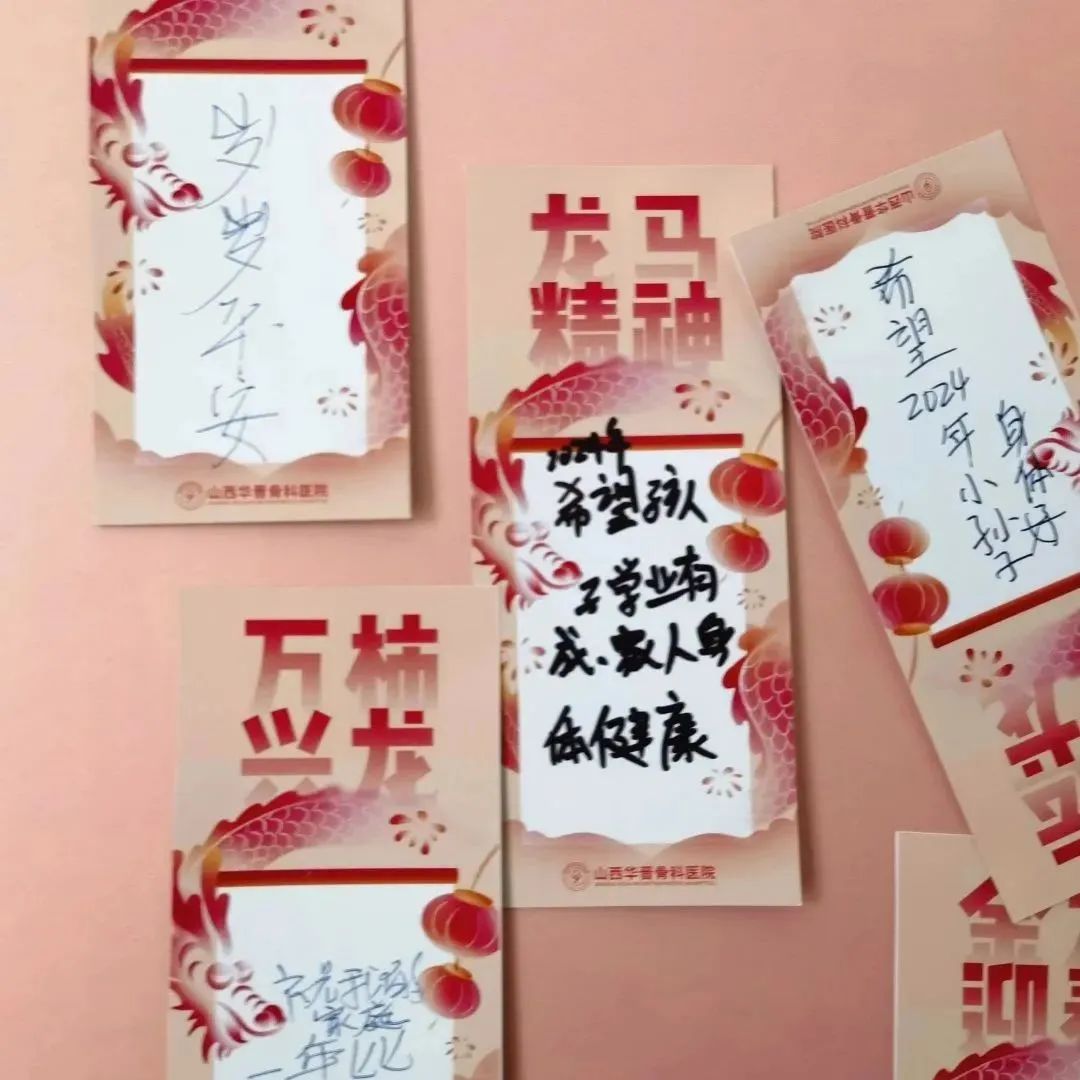 岁岁平安
山西华晋骨科医院
龙马
精神
2024年
希望孩人
子学业有
成、家人身
体健康
山西华晋骨科医院
山西华晋骨科医院
希望2024年小孙子
身体好
万柿
兴龙
家庭
一年比